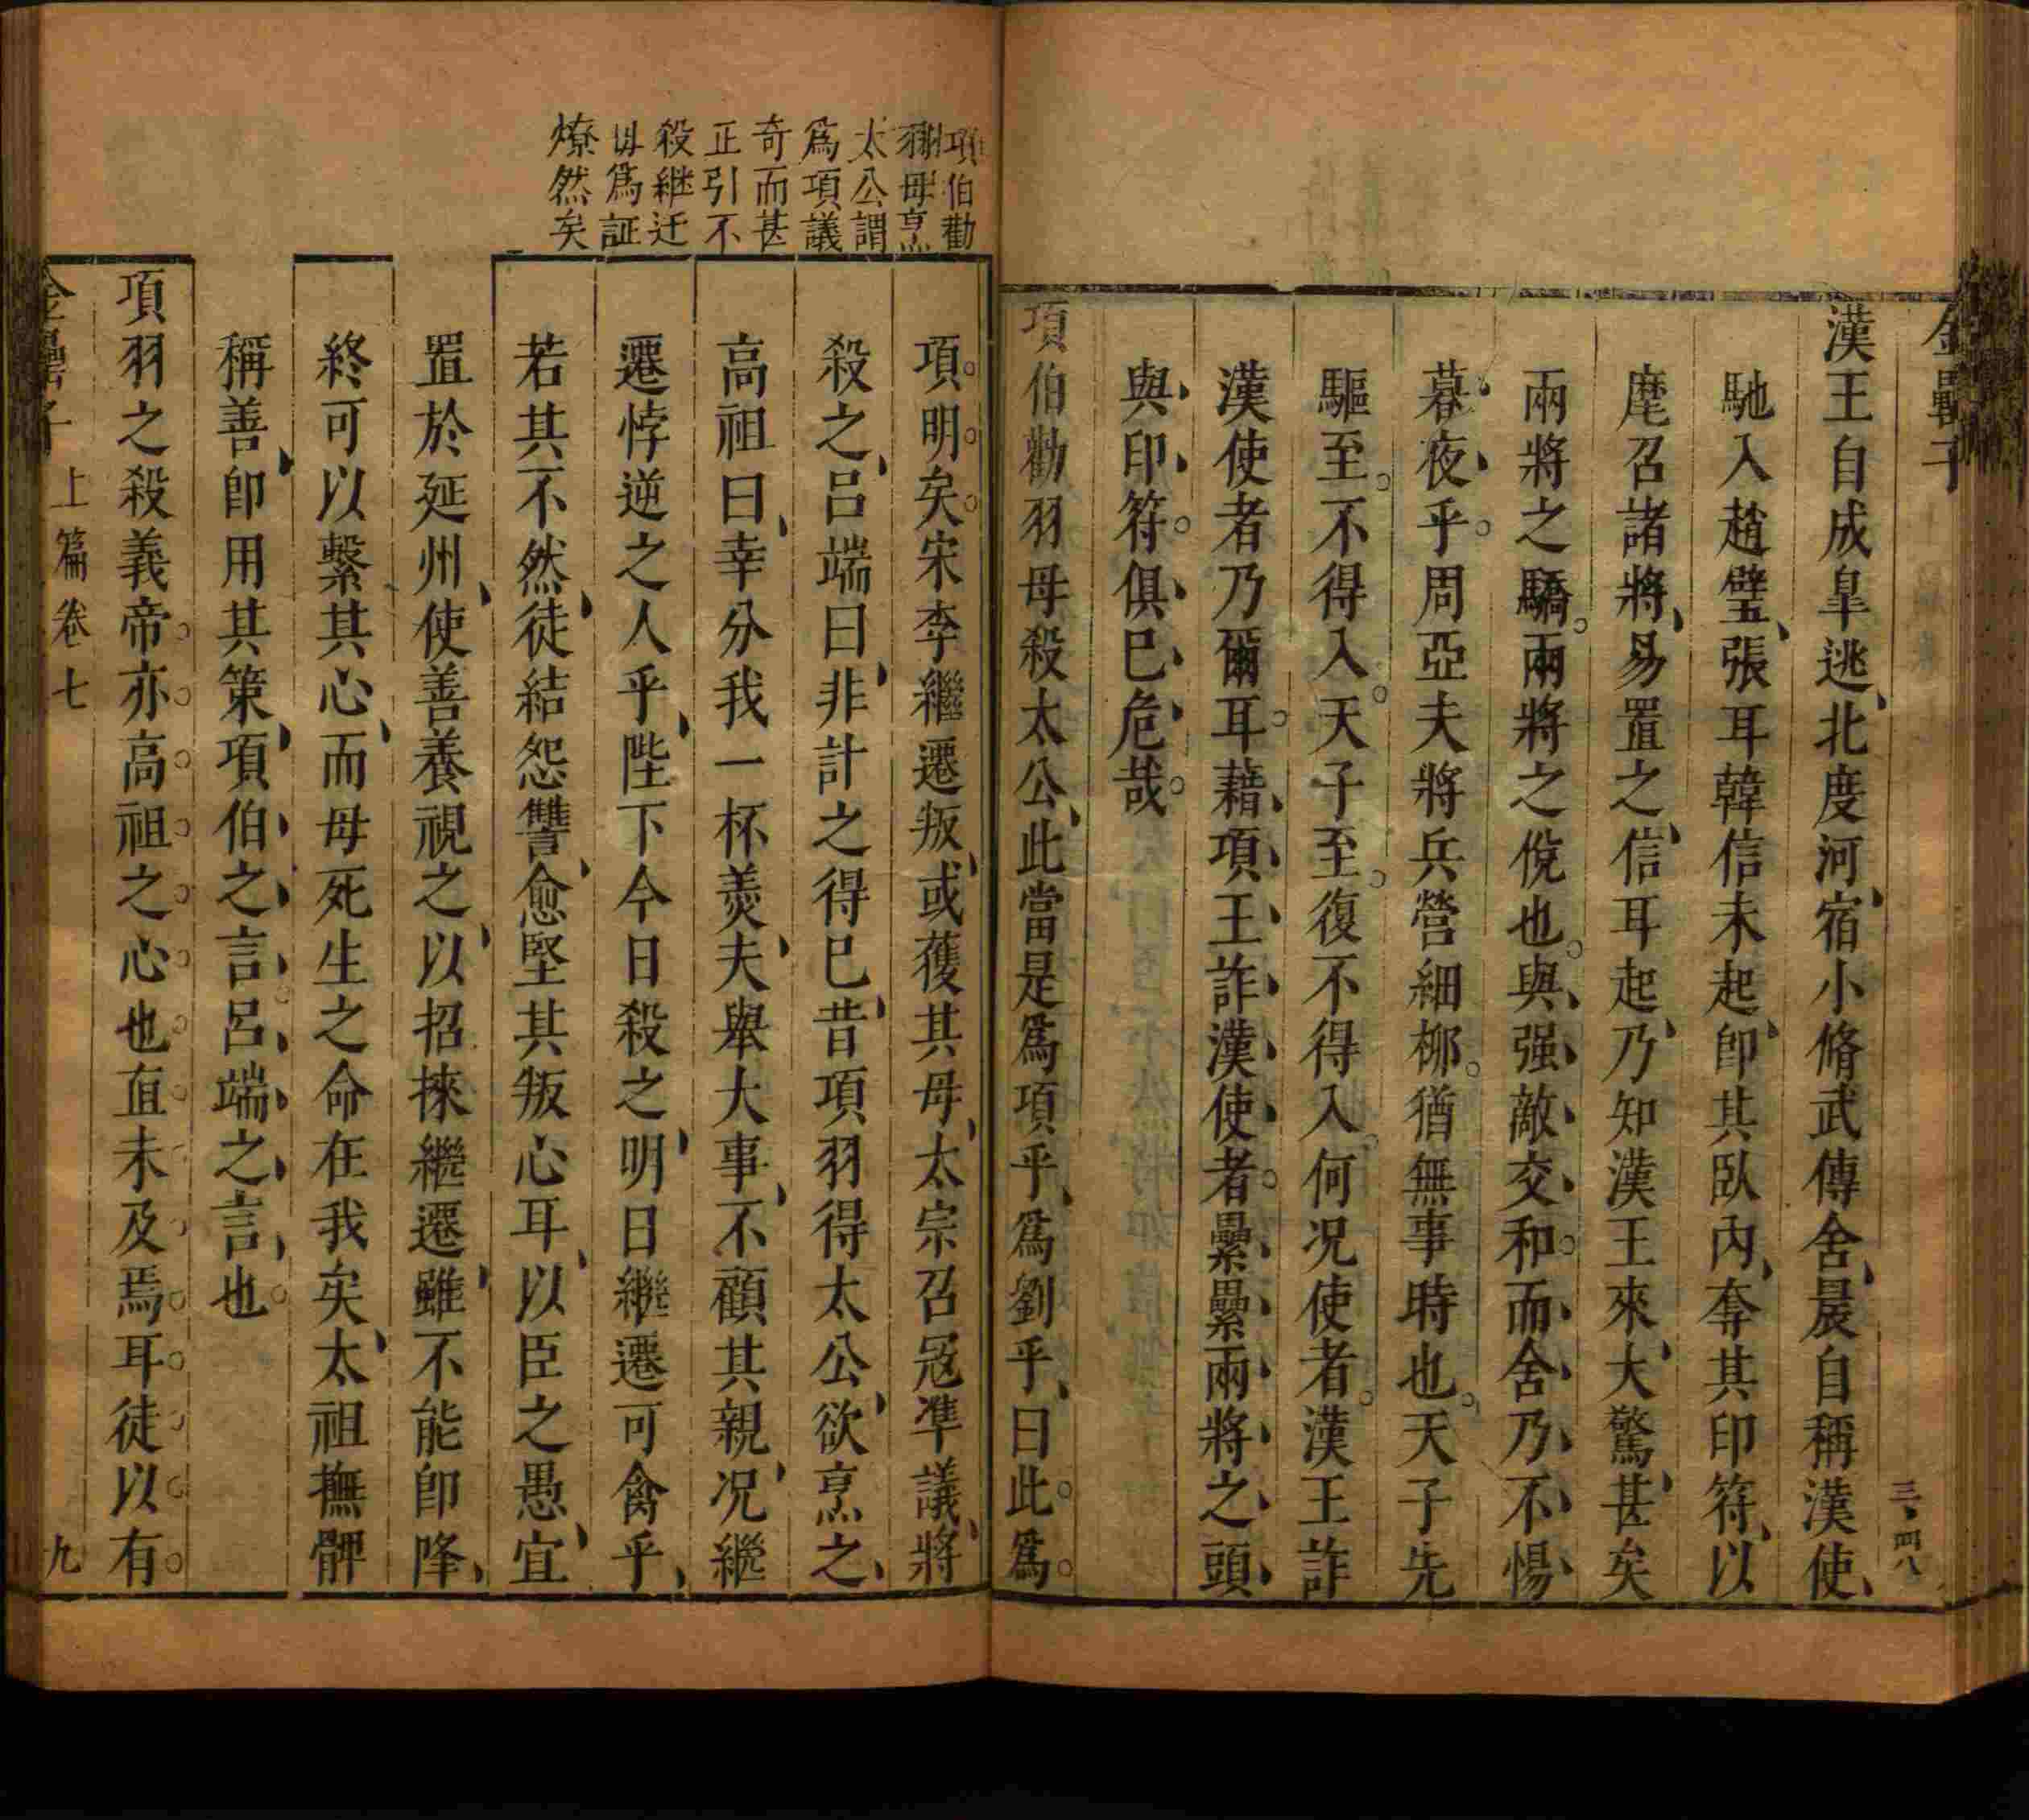 金罍子
三・四八
漢王自成皐逃、北度河、宿小脩武傳舍、晨自稱漢使、
馳入趙壁、張耳韓信未起、卽其臥內、奪其印符、以
麾召諸將、易置之、信耳起、乃知漢王來、大驚、甚矣
兩將之驕。兩將之侻也。與、强、敵、交、和。而、舍、乃、不、惕、
暮、夜、乎。周亞夫將兵營細柳。猶無事時也。天子先
驅至。不得入。天子至。復不得入。何况使者。漢王詐
漢使者乃爾耳。藉、項、王、詐、漢、使、者。纍、纍、兩、將、之、頭、
與、印、符。俱、已、危、哉。
項伯勸羽毋殺太公、此當是爲項乎、爲劉乎、曰此。爲。
項伯勸
羽毋烹
太公謂
爲項議
奇而甚
正引不
殺継迁
母爲証
燎然矣
項。明。矣。宋李繼遷叛、或獲其母、太宗召冦凖議、將
殺之、呂端曰、非計之得已、昔項羽得太公、欲烹之、
高祖曰、幸分我一杯羹、夫舉大事、不顧其親、况繼
遷悖逆之人乎、陛下今日殺之、明日繼遷可禽乎、
若其不然、徒結怨讐、愈堅其叛心耳、以臣之愚、宜
置於延州、使善養視之、以招徠繼遷、雖不能卽降、
終可以繫其心、而母死生之命在我矣、太祖撫髀
稱善、卽用其策、項、伯、之、言、呂、端、之、言、也。
項羽之殺義帝。亦。高。祖。之。心。也。直。未。及。焉。耳。徒。以。有。
金罍子
上篇卷七
九